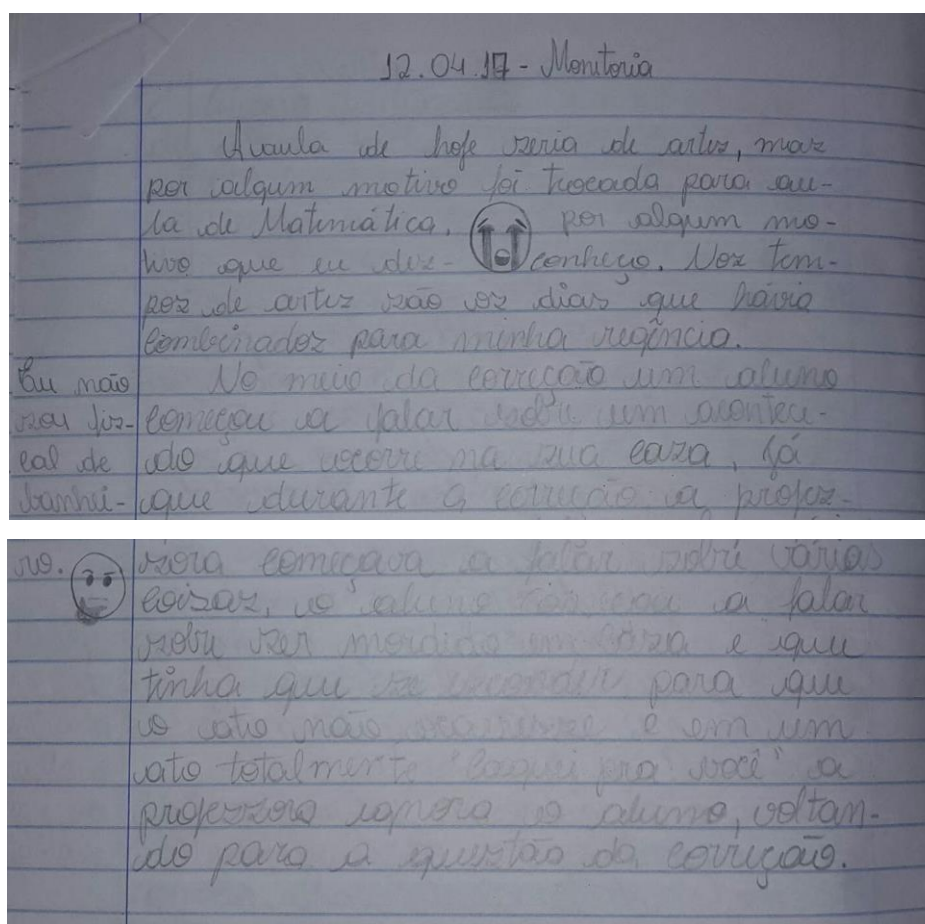 12.04.17 - Monitoria
A aula de hoje seria de artes, mas
por algum motivo foi trocada para au-
la de Matemática. por algum mo-
tivo que eu des- conheço. Nos tem-
pos de artes são os dias que havia
combinados para minha regência.
No meio da correção um aluno
começou a falar sobre um aconteci-
do que ocorre na sua casa, já
que durante a correção a profes-
Eu não
sou fis-
cal de
banhei-
ro.
sora começava a falar sobre várias
coisas, o aluno começou a falar
sobre ser mordido em casa e que
tinha que se esconder para que
o ato não ocorresse e em um
ato totalmente "caguei pra você" a
professora ignora o aluno, voltan-
do para a questão da correção.